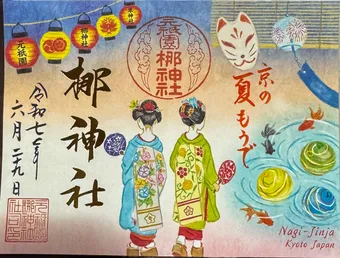 元祇園
梛神社
元祇園
梛神社
京の
夏もうで
梛神社
令和七年
六月二十九日
Nagi-Jinja
Kyoto Japan